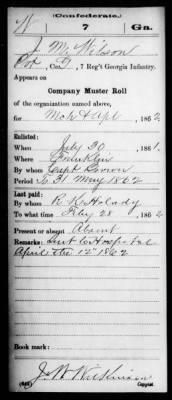 (Confederate.)
W 7 Ga.
J. M. Wilson
Co. , 7 Reg't Georgia Infantry.
Appears on
Company Muster Roll
of the organization named above,
for Mch & Apl , 186 2
Enlisted:
When July 30 , 186 1.
Where Franklin
By whom Capt
Period to 31 May 1862
Last paid:
By whom R. K. Holaday
To what time Feby 28 , 186 2
Present or absent Absent
Remarks: Sent to Hospital
April the 12th 1862
Book mark:
J. W.
(642) Copyist.